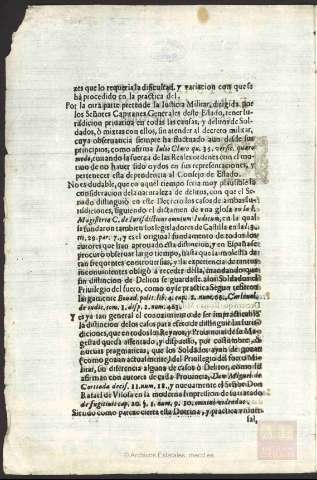 zes que lo requeria la dificultad, y variacion con que se
ha procedido en la practica del.
Por la otra parte pretende la Iusticia Militar, dirigida por
los Señores Capitanes Generales deste Estado, tener Iu-
risdicion privativa en todas las causas, y delitos de Sol-
dados, ò mixtas con ellos, sin atender al decreto militar,
cuya observancia siempre ha fluctuado aun desde sus
principios, como afirma Iulio Claro qu. 35. versic. quæro
modò, quitando la fuerça de las Reales ordenes con el mo-
tivo de no haver sido oydos en sus representaciones, y
pertenecer esta dependencia al Consejo de Estado.
No es dudable, que en aquel tiempo seria muy plausible la
consideracion de la naturaleza de delitos, con que el Se-
nado distinguiò en este Decreto los casos de ambas Iu-
risdiciones, siguiendo el dictamen de una glosa
Magisteria C. de Iurisdictione omnium Iudicum, en la qual
se fundaron tambien los legisladores de Castilla en la
29. par. 7. y es el original fundamento de todos los
autores que han aprovado esta distincion, y en España se
procurò observar largo tiempo, hasta que la molestia de
tan frequentes controversias, y la experiencia de
inconvenientes obligò a receder della, mandando que
sin distincion de Delitos se guardasse al os Soldados el
Privilegio del fuero, como oy se practica segun
largamente Bovad. polit. lib. 4. cap. 2. num. 68.
Y es ya tan general el conocimiento de ser impracticable
la distincion de los casos para efeto de distinguir las Iuris-
diciones, que en todos los Reynos, y Monarquia de su Ma-
gestad queda assentado, y dispuesto, por costumbre, ò
nuevas pragmaticas, que los Soldados ayan de gozar
como gozan actualmente del Privilegio del fuero Mi-
litar, sin diferencia alguna de casos ò Delitos, como
afirman con autores de cada Provincia, Don Miguel de
Cortiada decis. 11. num. 18. y nuevamente el Señor Don
Rafael de Vilosa en la moderna impresion de su tratado
de fugitivis cap. 10. §. 1. num. 9.
Siendo como parece cierta esta Dotrina, y practica univer-
sal,
© Archivos Estatales, mecd.es